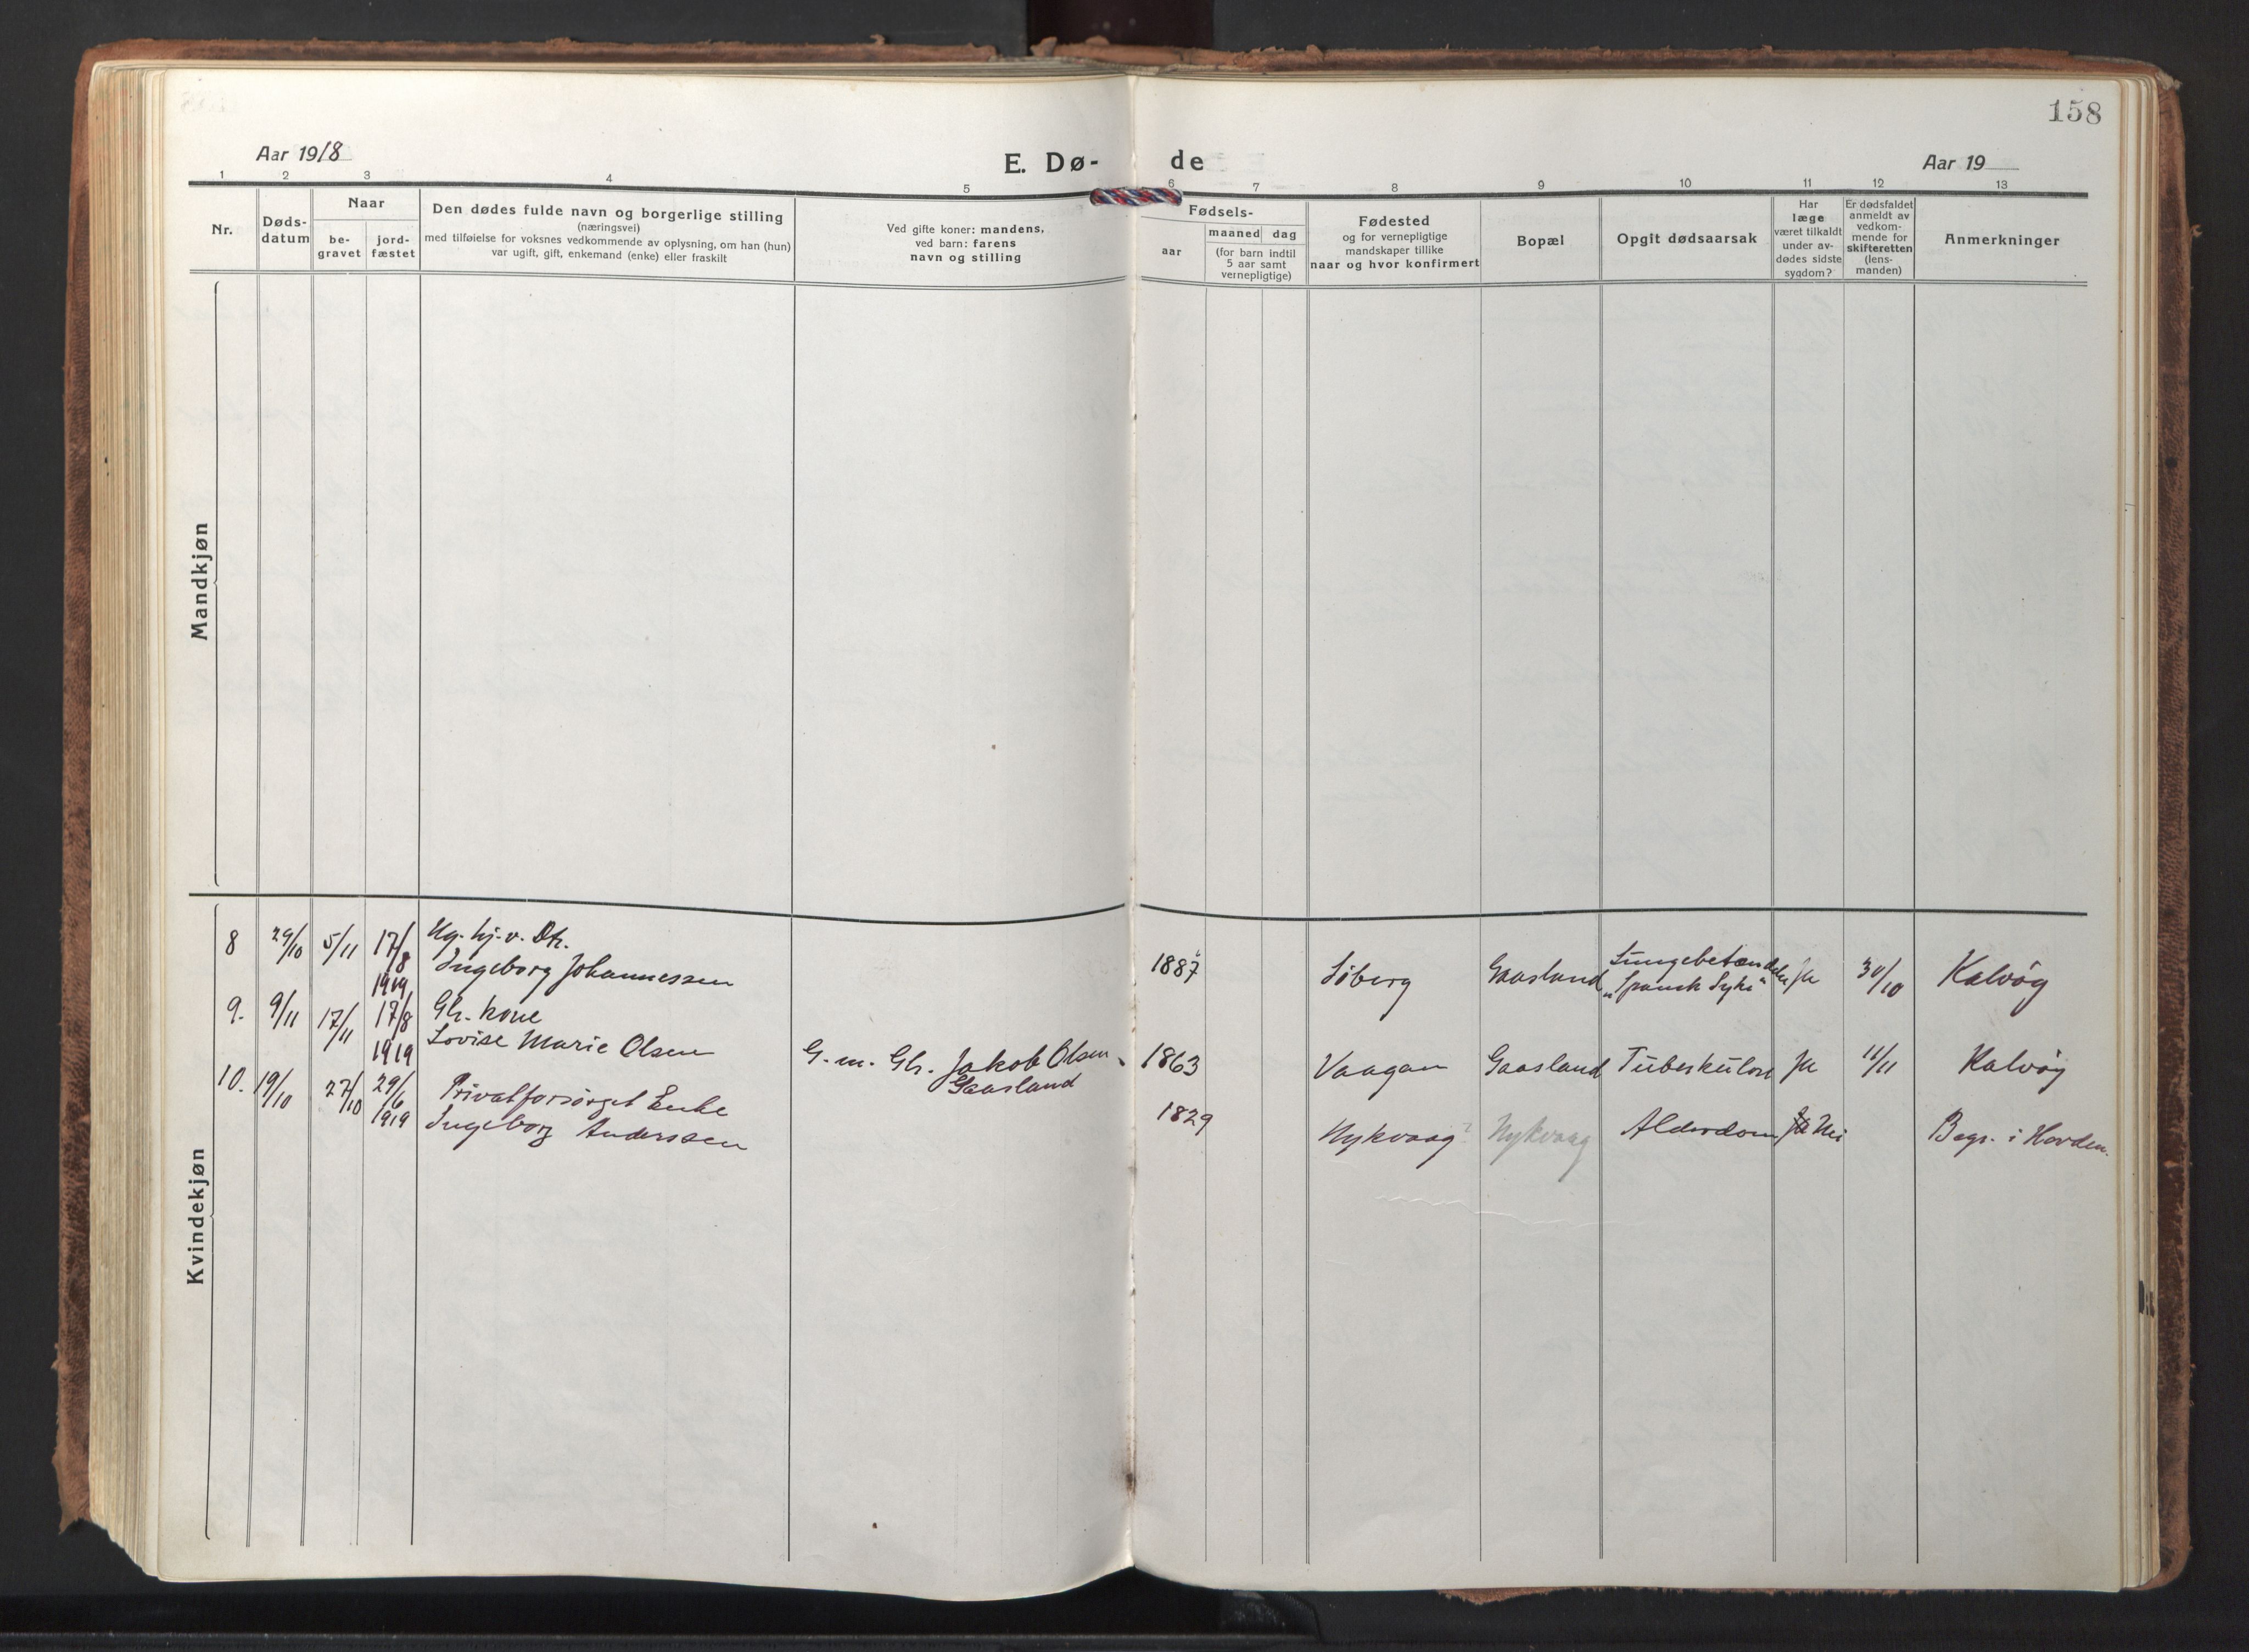 158
Aar 1918
E. Dø-
de
Aar 19
1 2 3 4 5 6 7 8 9 10 11 12 13
Nr.
Døds-
datum
Naar
be-
gravet
jord-
fæstet
Den dødes fulde navn og borgerlige stilling
(næringsvei)
med tilføielse for voksnes vedkommende av oplysning, om han (hun)
var ugift, gift, enkemand (enke) eller fraskilt
Ved gifte koner: mandens,
ved barn: farens
navn og stilling
Fødsels-
aar
maaned dag
(for barn indtil
5 aar samt
vernepligtige)
Fødested
og for vernepligtige
mandskaper tillike
naar og hvor konfirmert
Bopæl
Opgit dødsaarsak
Har
læge
været tilkaldt
under av-
dødes sidste
sygdom?
Er dødsfaldet
anmeldt av
vedkom-
mende for
skifteretten
(lens-
manden)
Anmerkninger
Mandkjøn
Kvindekjøn
8 29/10 5/11 17/8 Ug. hj. v. Dtr.
1919 Ingeborg Johannessen 1887 Söberg Gaasland Lungebetændelse "Spansk Syke" Ja 30/10 Kalvöy
9. 9/11 17/11 17/8 Gbr. kone
1919 Lovise Marie Olsen G. m. Gbr. Jakob Olsen, 1863 Vaagan Gaasland Tuberkulose Ja 11/11 Kalvöy
Gaasland
10. 19/10 27/10 29/6 Privatforsørget Enke
1919 Ingeborg Anderssen 1829 Nykvaag? Nykvaag Alderdom Ja Nei Begr. i Hovden.